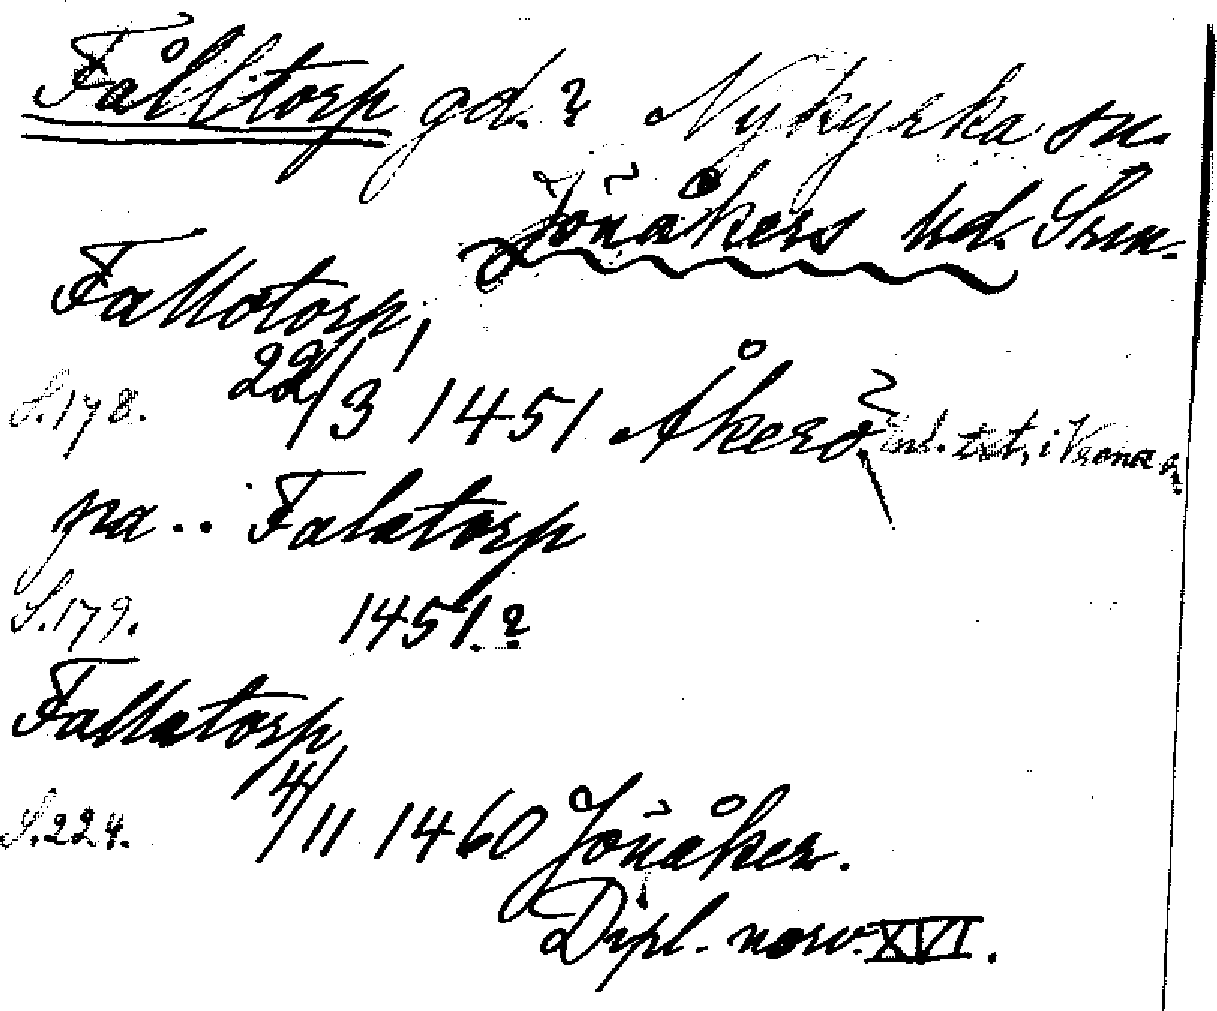 Fålltorp gd.? Nykyrka sn.
Jönåkers hd. Srm.
Fallotorp,
S.178. 22/3 1451 Åkerö. enl. txt, i Vrena sn.
pa.. Falatorp
S.179. 1451.?
Fallatorp
S.224. 4/11 1460 Jönåker.
Dipl. norv. XVI.